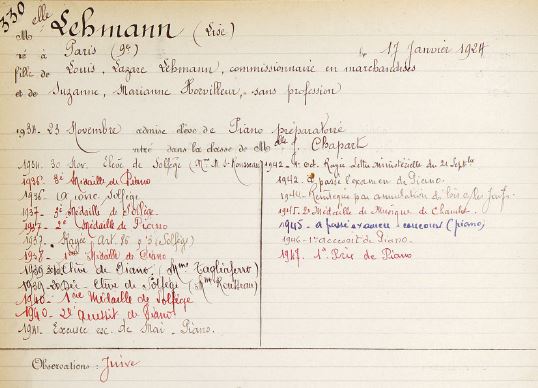 330
Melle Lehmann (Lise)
né à Paris (9e) le 17 Janvier 1924
fille de Louis, Lazare Lehmann, commissionnaire en marchandises
et de Suzanne, Marianne Horvilleur, sans profession
1934. 23 Novembre admise élève de Piano préparatoire
entré dans la classe de Mlle J. Chapart
1934. 30 Nov. Elève de Solfège (Mme M. S. Rousseau)
1936. 3e Médaille de Piano
1936. Solfège
1937. 3e Médaille de Solfège
1937. 2e Médaille de Piano
1937. Rayée (Art. Solfège)
1938. 1ère Médaille de Piano
1939. Elève de Piano (Mme Tagliaferro)
1939. Déc. Elève de Solfège (Mme Rousseau)
1940. 1ère Médaille de Solfège
1940. 2e Accessit de Piano
1941. Excusée ex. de Mai. Piano.
1942. Oct. Rayée Lettre Ministérielle du 21 Septbre
1942. a passé l'examen de Piano.
1944. Réintégrée par annulation de lois s/les Juifs.
1945. 2e Médaille de Musique de Chambre
1945. a passé examen concours (piano)
1946. 1er accessit de Piano.
1947. 1er Prix de Piano
Observations : Juive